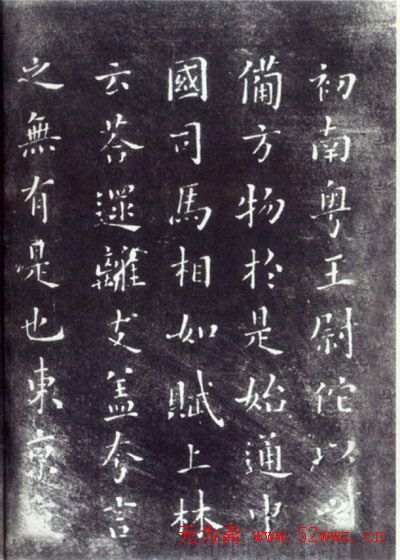 初南粤王尉佗以此
備方物於是始通中
國司馬相如賦上林
云荅遝離支盖夸言
之無有是也東京
无为斋 www.52wwz.cn